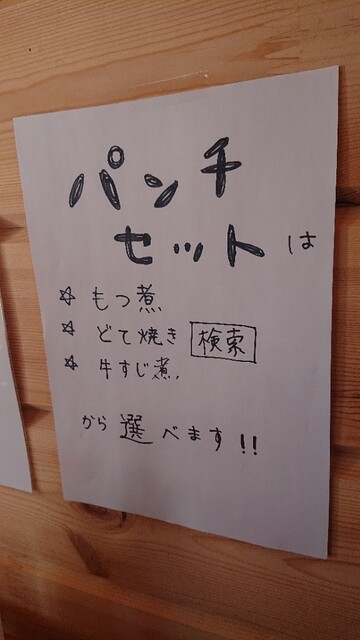 パンチ
セットは
☆ もつ煮
☆ どて焼き 検索
☆ 牛すじ煮
から選べます!!